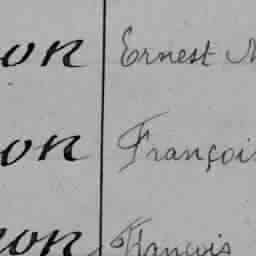 on Ernest
on François
on François